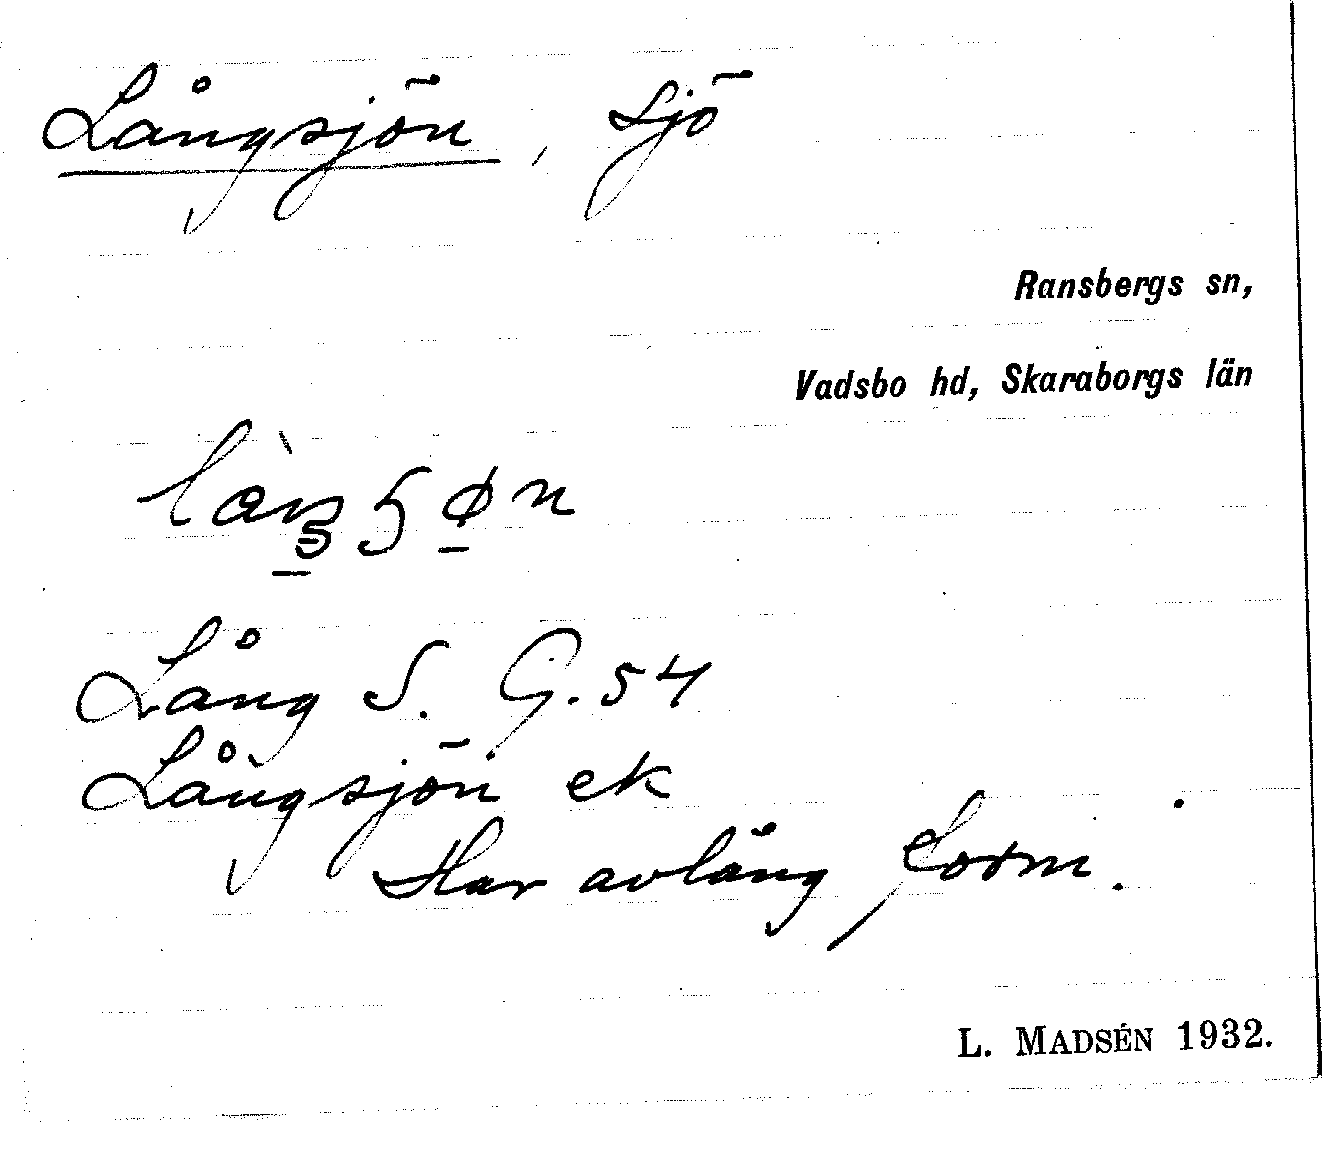 Långsjön, sjö
Ransbergs sn,
Vadsbo hd, Skaraborgs län
Lång S. G. 54
Långsjön ek
Har avlång form.
L. MADSÉN 1932.